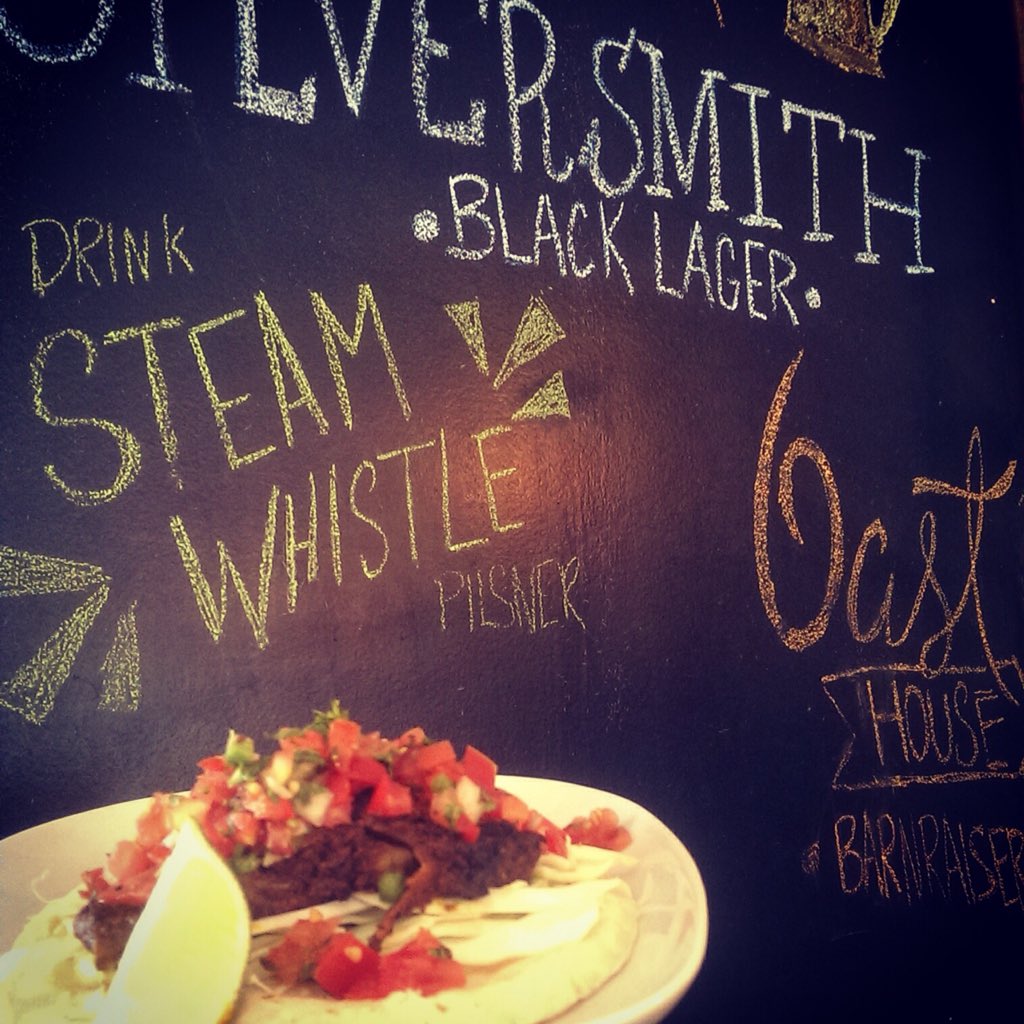 SILVERSMITH
•BLACK LAGER•
DRINK
STEAM
WHISTLE
PILSNER
Oast
HOUSE
BARNRAISER